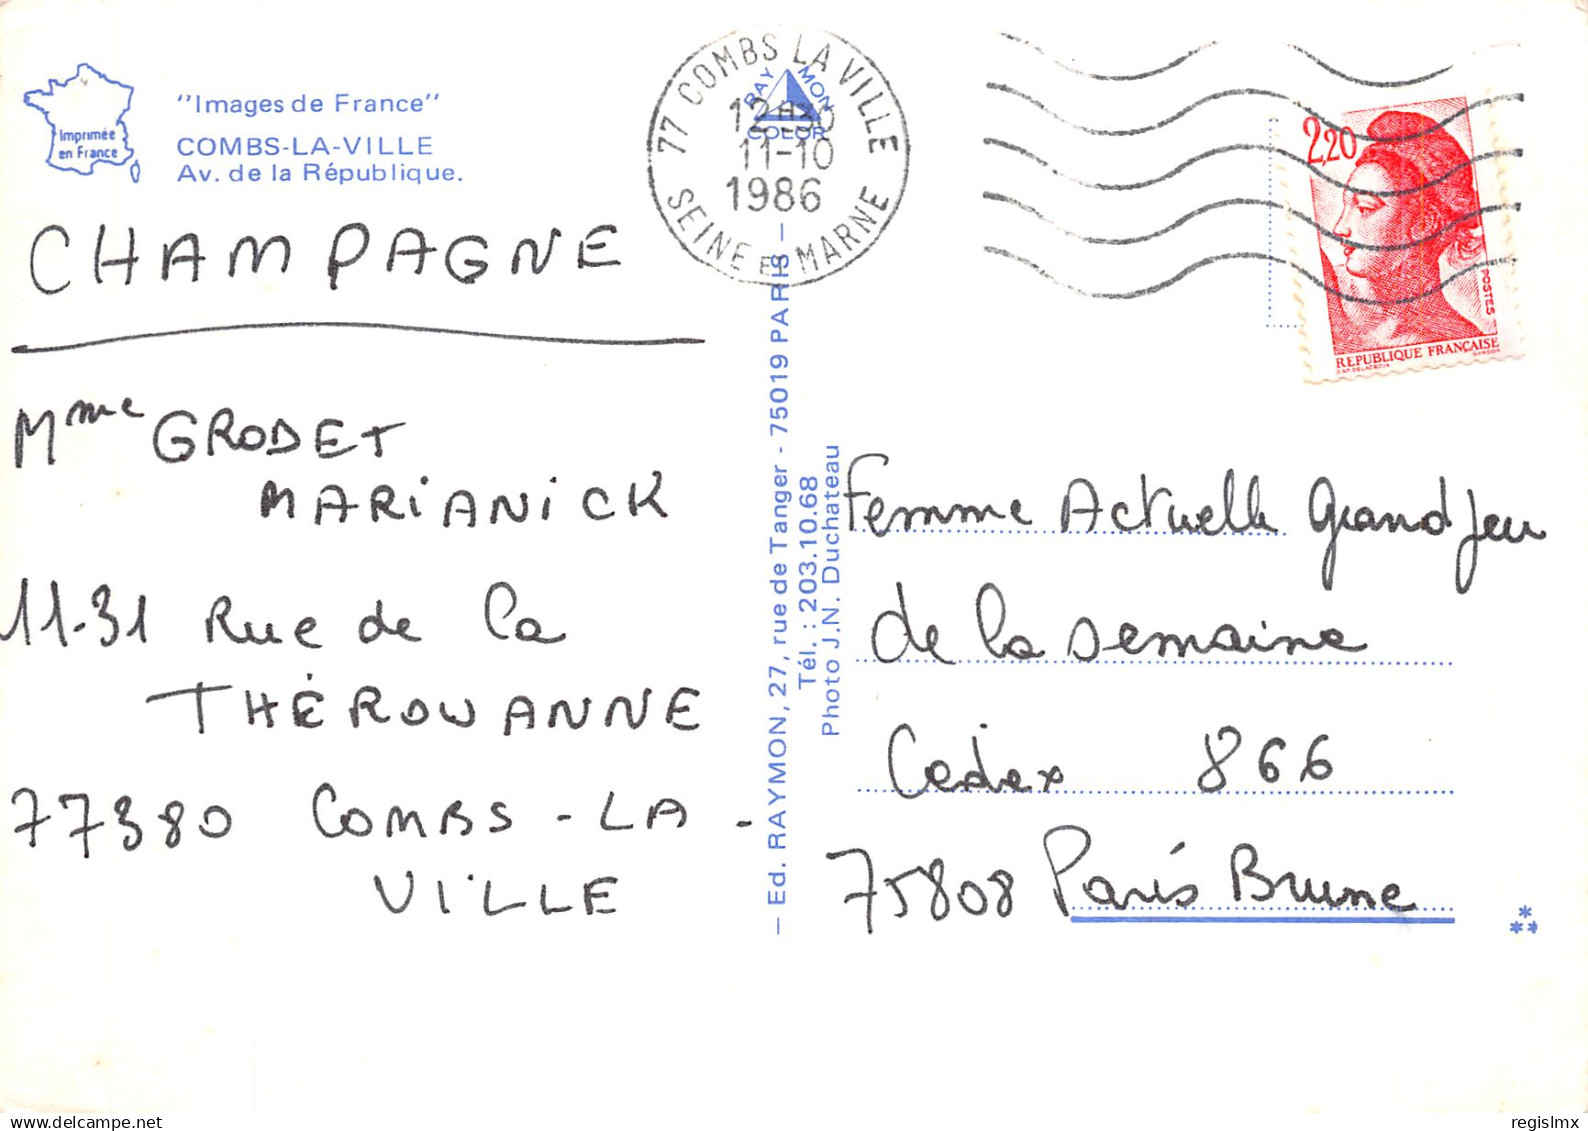 Imprimée
en France
"Images de France"
COMBS-LA-VILLE
Av. de la République.
77 COMBS LA VILLE
12-30
11-10
1986
SEINE ET MARNE
RAYMON
COLOR
2,20
POSTES
REPUBLIQUE FRANÇAISE
CHAMPAGNE
Mme GRODET
MARIANICK
11.31 Rue de la
THÉROUANNE
77380 COMBS-LA-
VILLE
— Ed. RAYMON, 27, rue de Tanger - 75019 PARIS —
Tél. : 203.10.68
Photo J.N. Duchateau
Femme Actuelle Grand Jeu
de la semaine
Cedex 866
75808 Paris Brune
regislmx